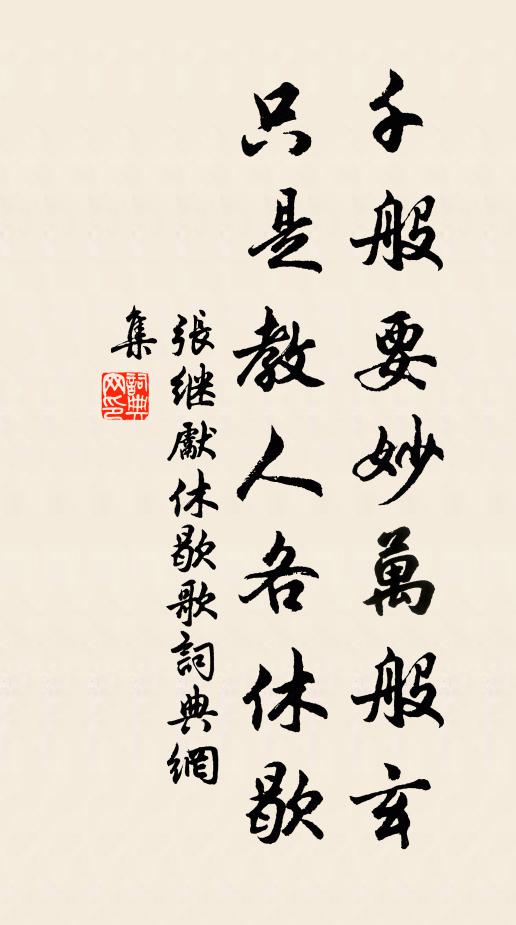 千般要妙萬般玄
只是教人各休歇
張継獻休歇歌詞典網
集
詞典网印